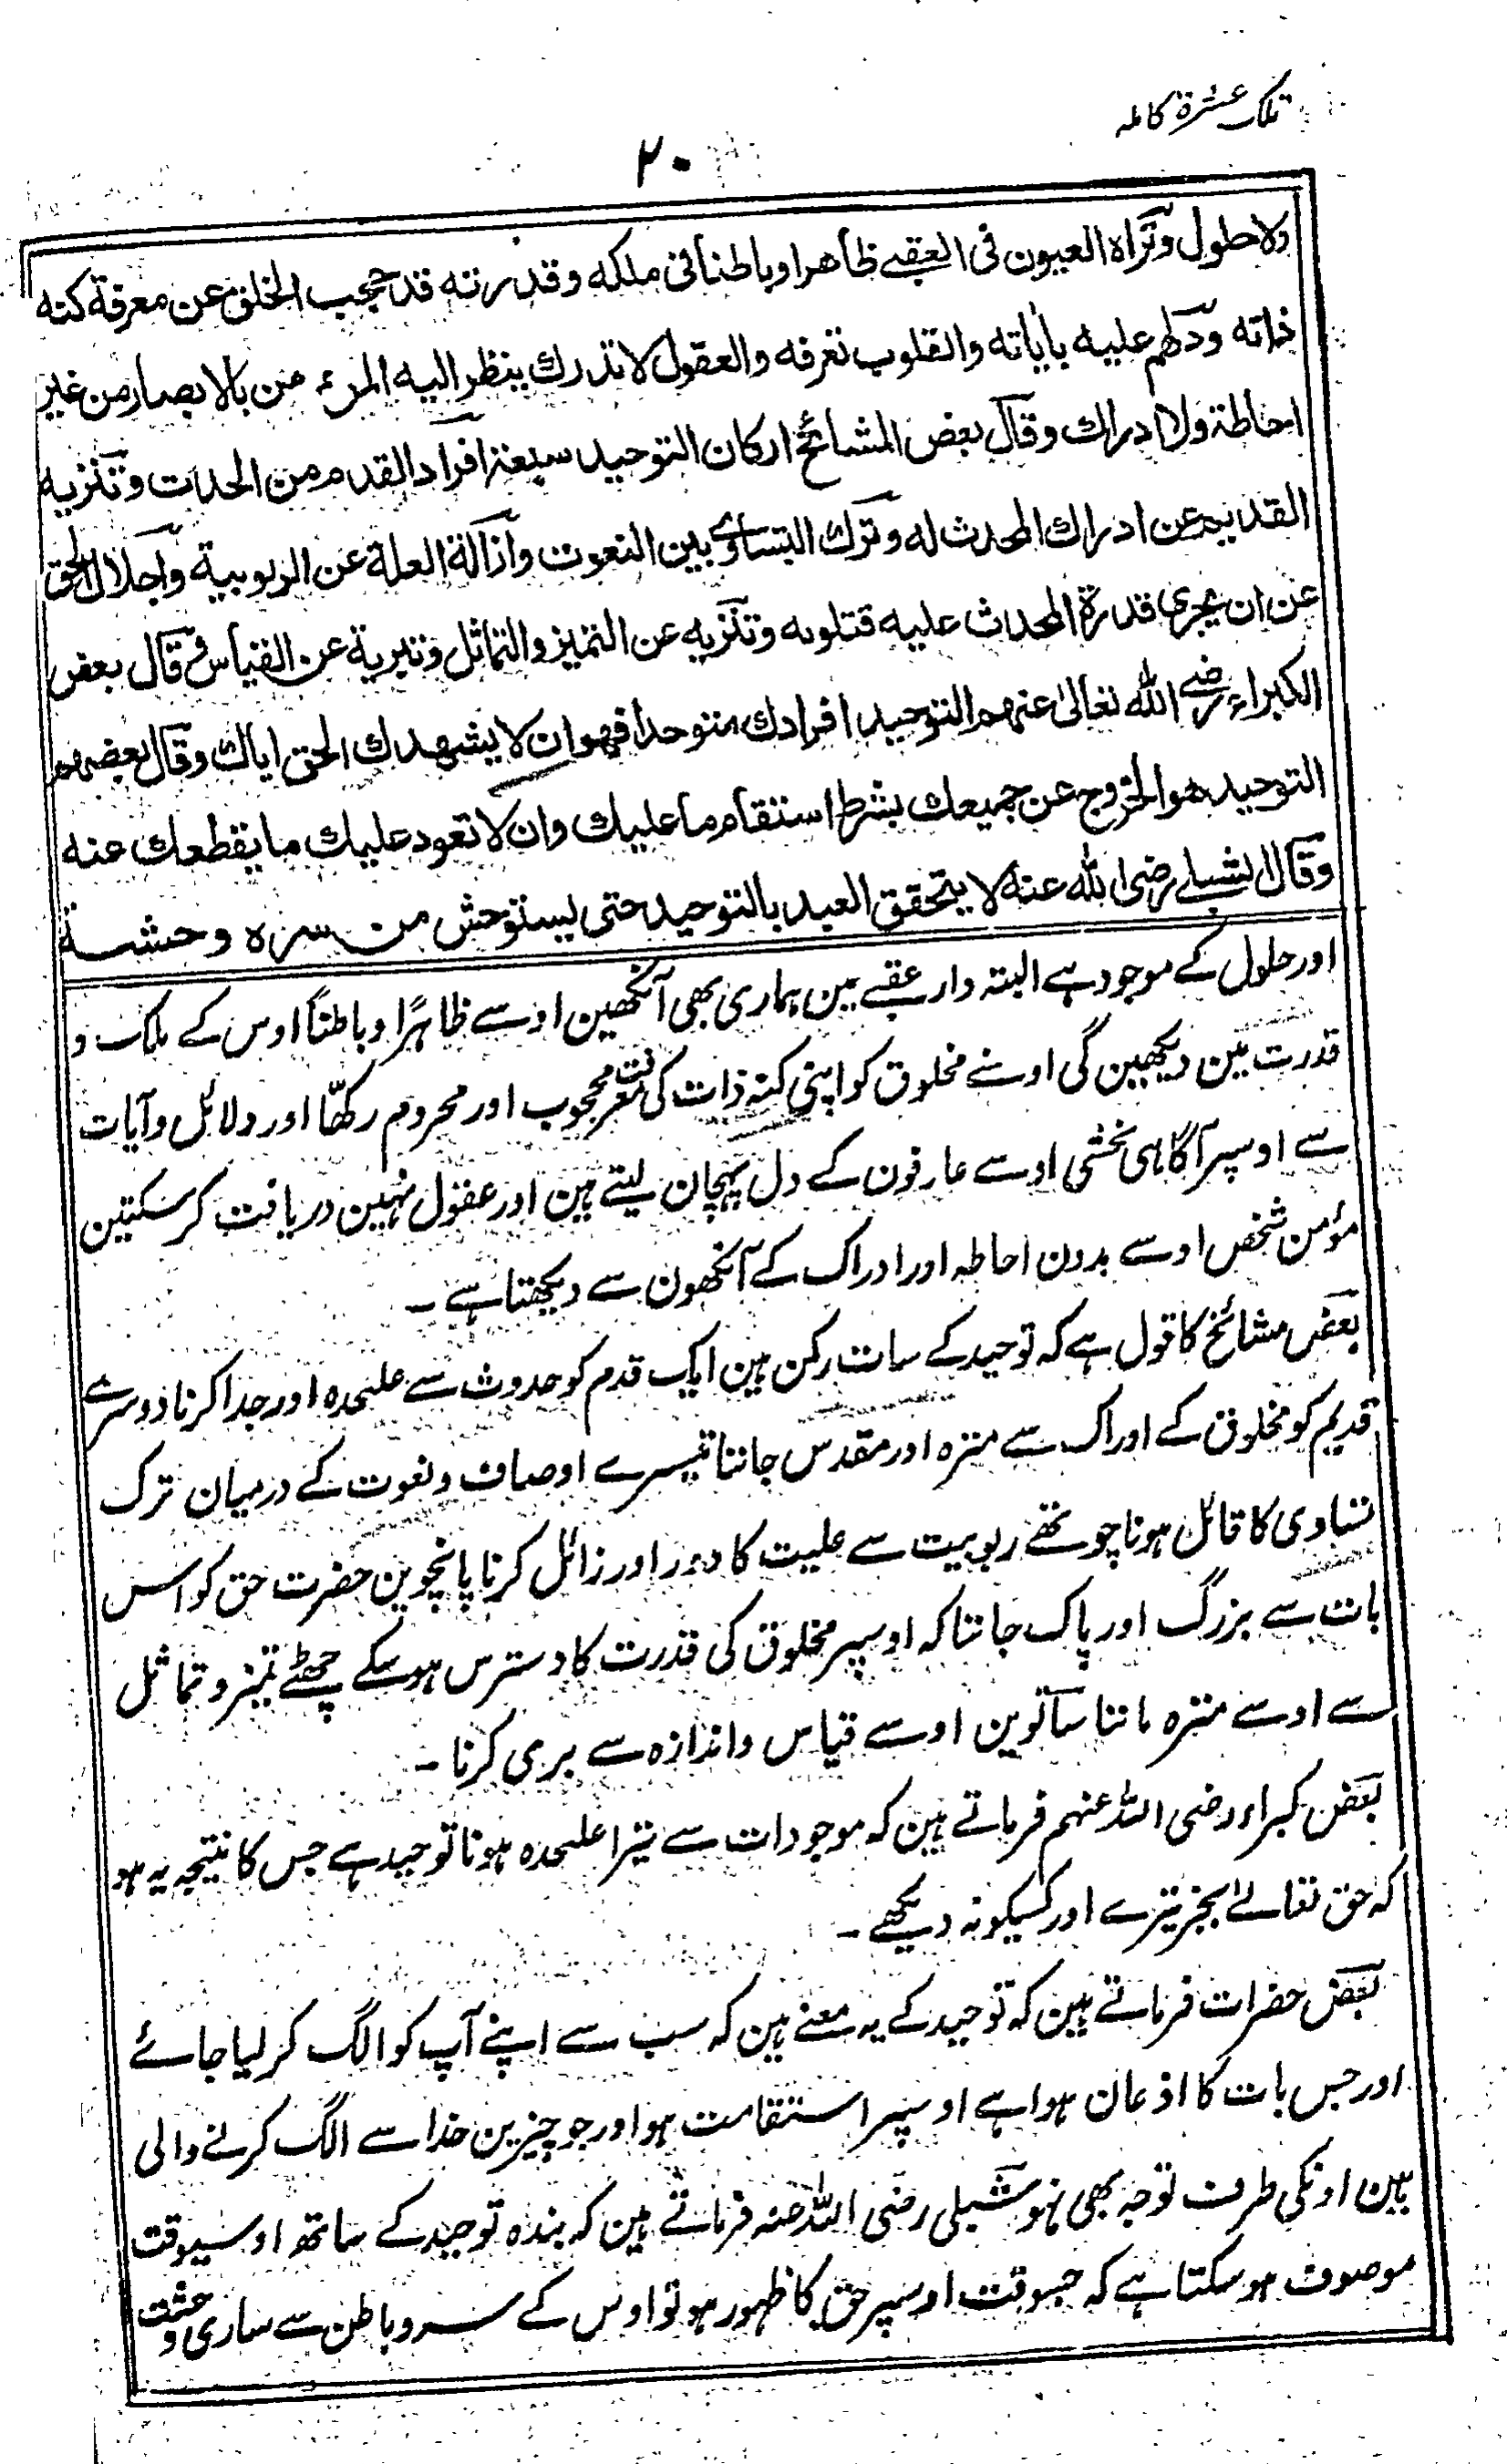 تلک عشرة کامله
۲۰
ولا حلول وتراه العیون فی العقبے ظاهرا وباطنا فی ملکه وقدرته قد حجب الخلق عن معرفة کنه
ذاته ودلهم علیه بایاته والقلوب تعرفه والعقول لا تدرك ینظر الیه المؤمن بالابصار من غیر
احاطة ولا ادراك وقال بعض المشائخ ارکان التوحید سبعة افراد القدم من الحدث وتنزیه
القدیم عن ادراك المحدث له وترك التساوی بین النعوت وازالة العلة عن الربوبیة واجلال الحق
عن ان یجری قدرة المحدث علیه فتلونه وتنزیه عن التمیز والتماثل وتبریة عن القیاس وقال بعض
الکبراء رضی الله تعالی عنهم التوحید افرادك متوحدا فهو ان لا یشهدك الحق ایاك وقال بعضهم
التوحید هو الخروج عن جمیعك بشرط استقام ما علیك وان لا تعود علیك ما یقطعك عنه
وقال الشبلے رضی الله عنه لا یتحقق العبد بالتوحید حتی یستوحش من سره وحشة
اور حلول کے موجود ہے البتہ دار عقبے مین ہماری بھی آنکھین اوسے ظاہرًا و باطنًا اوس کے ملک و
قدرت مین دیکھین گی اوسنے مخلوق کو اپنی کنہ ذات کی معرفت محجوب اور محروم رکھّا اور دلائل و آیات
سے اوسپر آگاہی بخشی اوسے عارفون کے دل پہچان لیتے ہین اور عقول نہین دریافت کرسکتین
مؤمن شخص اوسے بدون احاطہ اور ادراک کے آنکھون سے دیکھتا ہے -
بعض مشائخ کا قول ہے کہ توحید کے سات رکن ہین ایک قدم کو حدوث سے علٰحدہ اور جدا کرنا دوسرے
قدیم کو مخلوق کے اوراک سے منزہ اور مقدس جاننا تیسرے اوصاف و نعوت کے درمیان ترک
تساوی کا قائل ہونا چوتھے ربوبیت سے علیت کا دور اور زائل کرنا پانچوین حضرت حق کو اس
بات سے بزرگ اور پاک جاننا کہ اوسپر مخلوق کی قدرت کا دسترس ہوسکے چھٹے تمیز و تماثل
سے اوسے منزہ ماننا ساتوین اوسے قیاس و اندازہ سے بری کرنا -
بعض کبراء رضی اللہ عنہم فرماتے ہین کہ موجودات سے تیرا علٰحدہ ہونا توحید ہے جس کا نتیجہ یہ ہو
کہ حق تعالےٰ بجز تیرے اور کسیکو نہ دیکھے -
بعض حضرات فرماتے ہین کہ توحید کے یہ معنے ہین کہ سب سے اپنے آپ کو الگ کر لیا جائے
اور جس بات کا اذعان ہوا ہے اوسپر استقامت ہو اور جو چیزین خدا سے الگ کرنے والی
ہین اونکی طرف توجہ بھی نہو شبلی رضی اللہ عنہ فرماتے ہین کہ بندہ توحید کے ساتھ اوسیوقت
موصوف ہوسکتا ہے کہ جسوقت اوسپر حق کا ظہور ہو تو اوس کے سر و باطن سے ساری وحشت